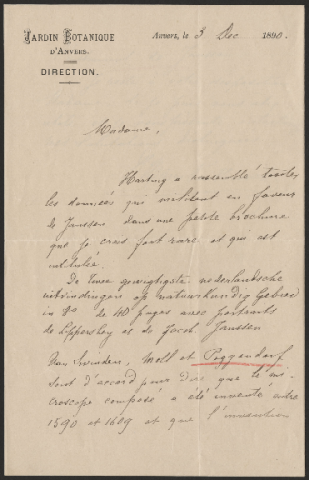 JARDIN BOTANIQUE
D'ANVERS.
DIRECTION.
Anvers, le 3 Dec 1890.
Madame,
Harting a rassemblé toutes
les données qui militent en faveur
de Janssen dans une petite brochure
que je crois fort rare et qui est
intitulée.
De Twee gewigtigste nederlandsche
uitvindingen op natuurkundig Gebied
in 8° de 40 pages avec portraits
de Lippershey et de Zach Janssen
Van Swinden, Moll et Poggendorf
sont d'accord pour dire que le mi-
croscope composé a été inventé entre
1590 et 1609 et que l'invention